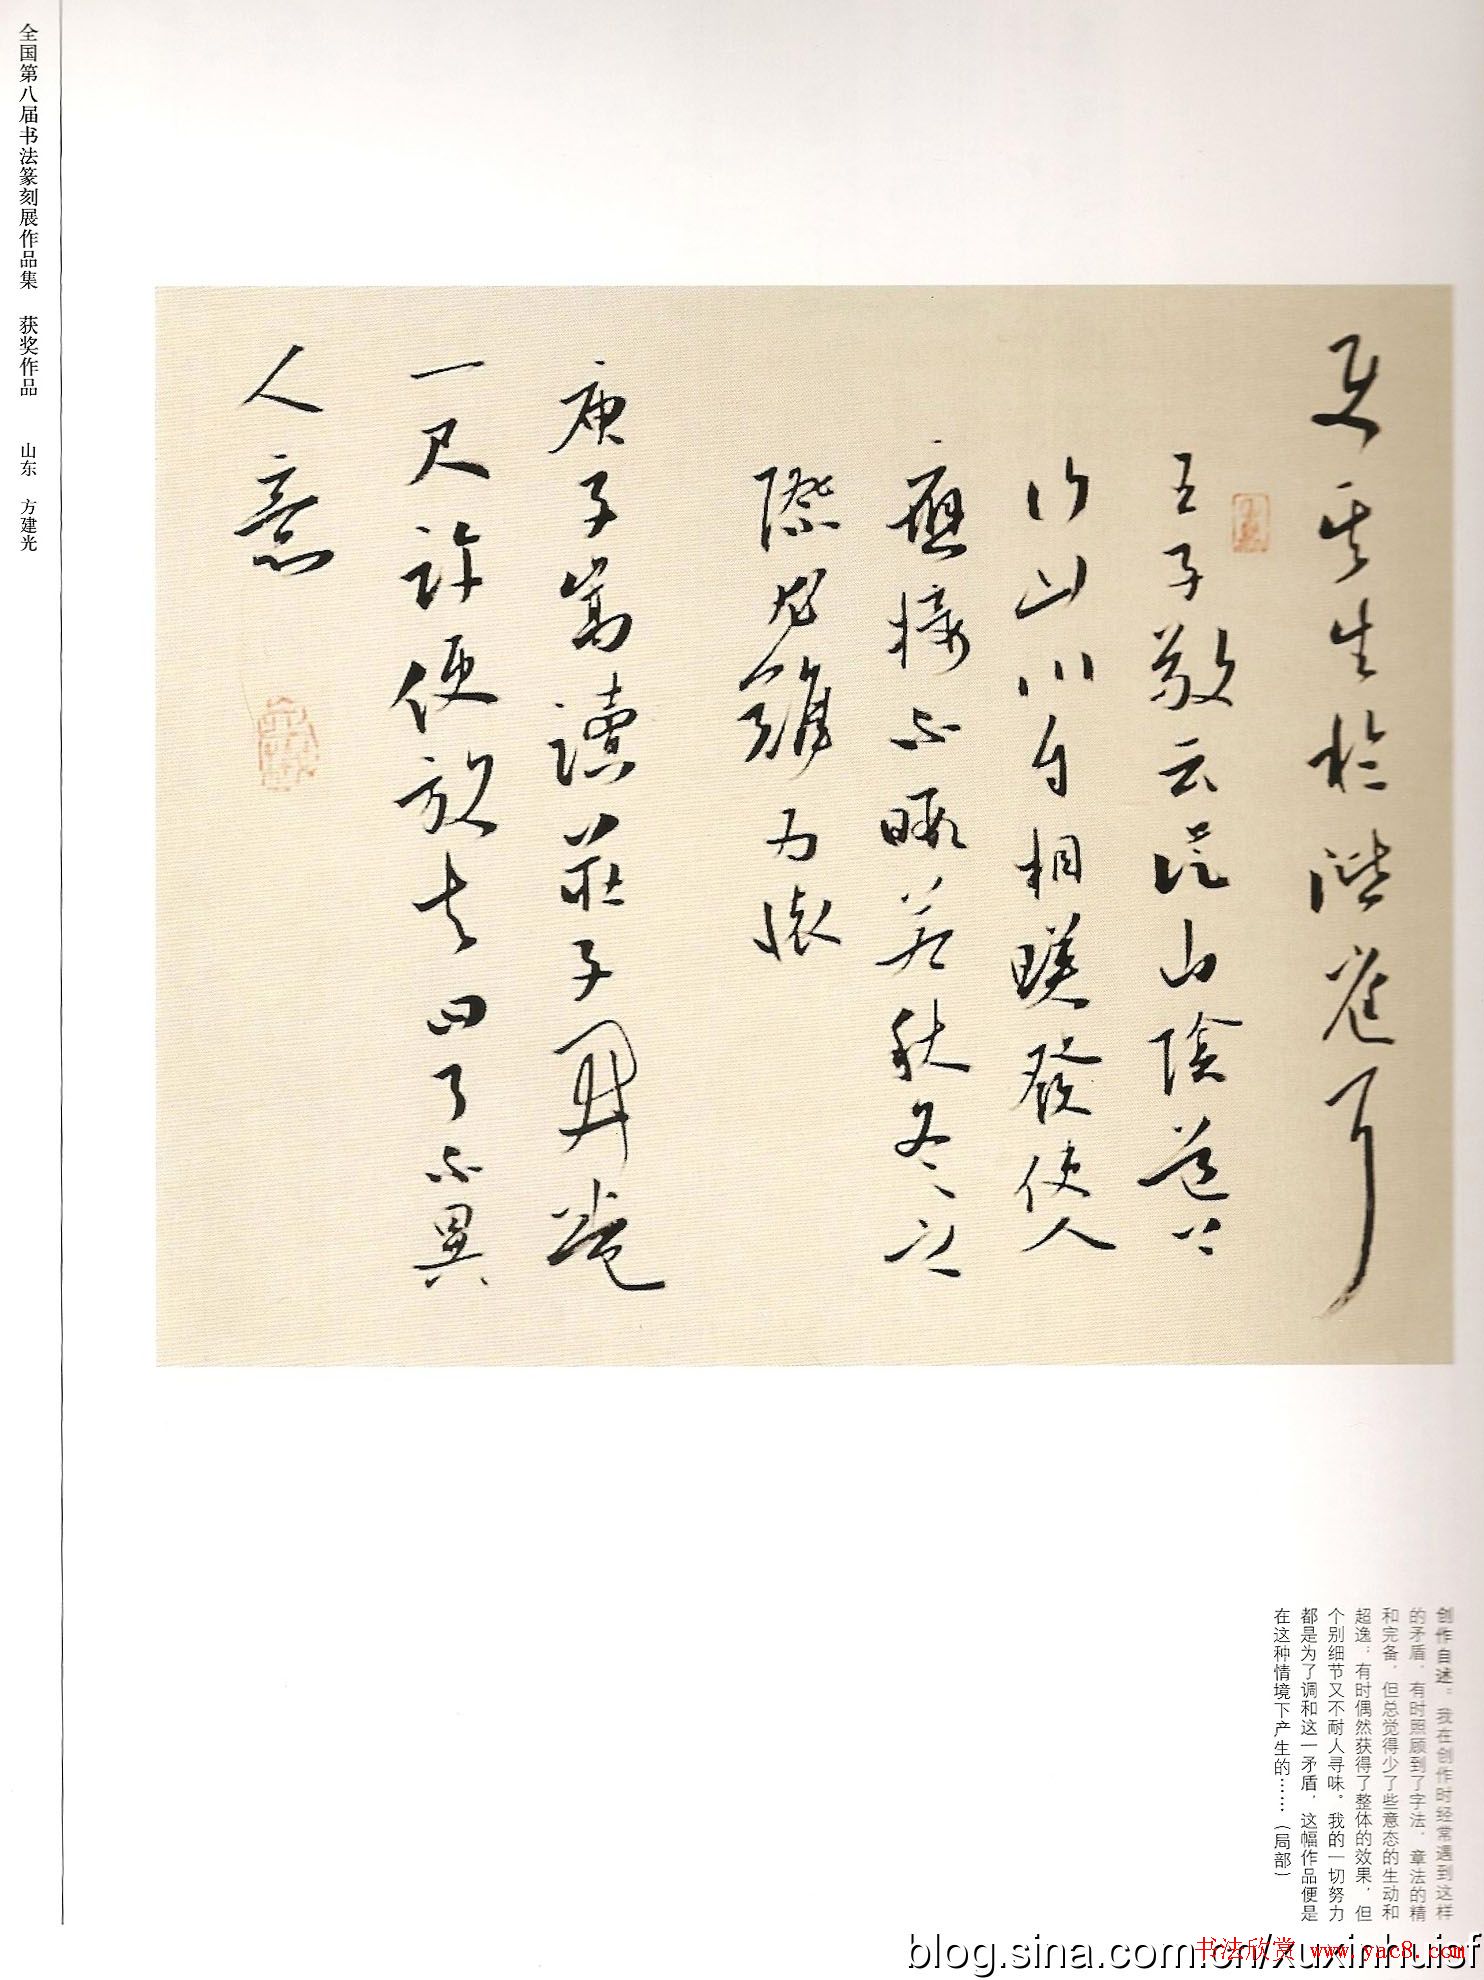 全国第八届书法篆刻展作品集 获奖作品 山东 方建光
更其生於階庭耳
王子敬云從山陰道上
行山川自相暎發使人
應接不暇若秋冬之
際尤難为懷
庾子嵩讀莊子開卷
一尺許便放去曰了不異
人意
创作自述：我在创作时经常遇到这样
的矛盾，有时照顾到了字法、章法的精
和完备，但总觉得少了些意态的生动和
超逸；有时偶然获得了整体的效果，但
个别细节又不耐人寻味。我的一切努力
都是为了调和这一矛盾，这幅作品便是
在这种情境下产生的……（局部）
blog.sina.com.cn/xuxinhuisf
书法欣赏 www.yac8.com